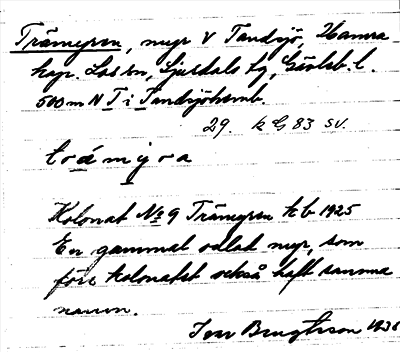 Trämyran, myr V Tandsjö, Hamra
kap. Los sn, Ljusdals tg, Gävleb. l.
500 m N T i Tandsjöhemb.
29. k G 83 SV.
troämyra
Kolonat No 9 Trämyran kb 1925
En gammal odlad myr, som
före kolonatet också haft samma
namn.
Ivar Bengtsson 1936